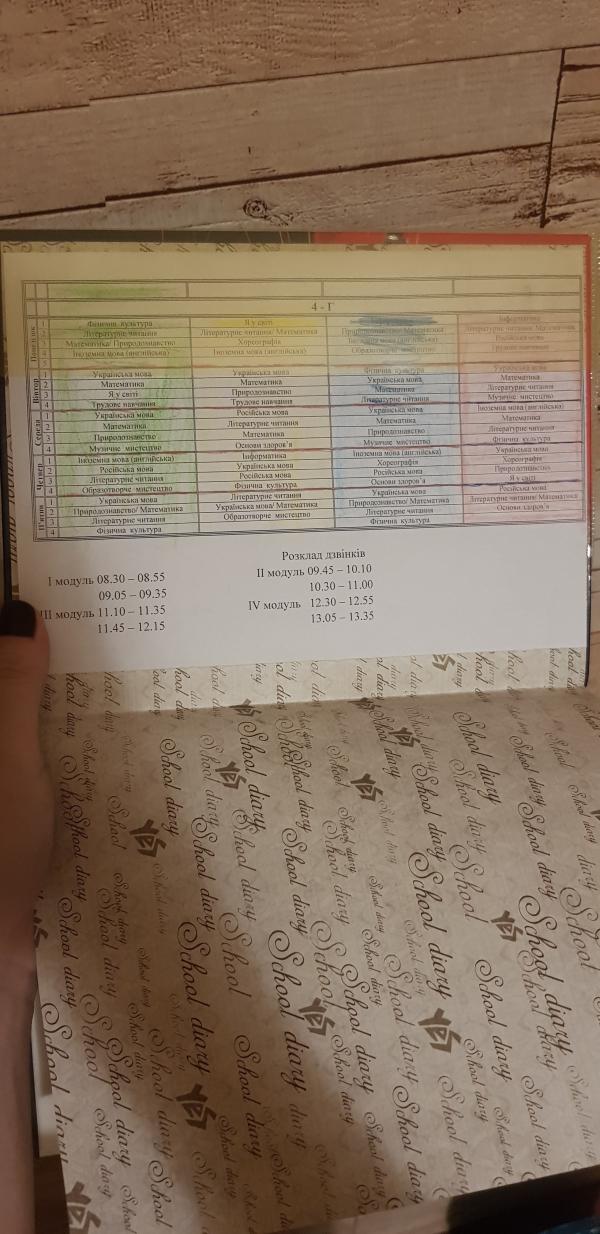 4 - Г
Понеділок 1 Фізична культура Я у світі Інформатика
2 Літературне читання Літературне читання/ Математика Природознавство/ Математика Літературне читання/
3 Математика/ Природознавство Хореографія Іноземна мова (англійська) Російська мова
4 Іноземна мова (англійська) Іноземна мова (англійська) Образотворче мистецтво Трудове навчання
5 Фізична культура Українська мова
Вівторок 1 Українська мова Українська мова Українська мова Математика
2 Математика Математика Математика Літературне читання
3 Я у світі Природознавство Літературне читання Музичне мистецтво
4 Трудове навчання Трудове навчання Українська мова Іноземна мова (англійська)
Середа 1 Українська мова Російська мова Математика Математика
2 Математика Літературне читання Природознавство Літературне читання
3 Природознавство Математика Музичне мистецтво Фізична культура
4 Музичне мистецтво Основи здоров'я Іноземна мова (англійська) Українська мова
Четвер 1 Іноземна мова (англійська) Інформатика Хореографія Хореографія
2 Російська мова Українська мова Російська мова Природознавство
3 Літературне читання Російська мова Основи здоров'я Я у світі
4 Образотворче мистецтво Фізична культура Українська мова Російська мова
П'ятниця 1 Українська мова Літературне читання Природознавство/ Математика Літературне читання/ Математика
2 Природознавство/ Математика Українська мова/ Математика Літературне читання Основи здоров'я
3 Літературне читання Образотворче мистецтво Фізична культура
4 Фізична культура
Розклад дзвінків
I модуль 08.30 – 08.55 II модуль 09.45 – 10.10
09.05 – 09.35 10.30 – 11.00
III модуль 11.10 – 11.35 IV модуль 12.30 – 12.55
11.45 – 12.15 13.05 – 13.35
School diary
YES